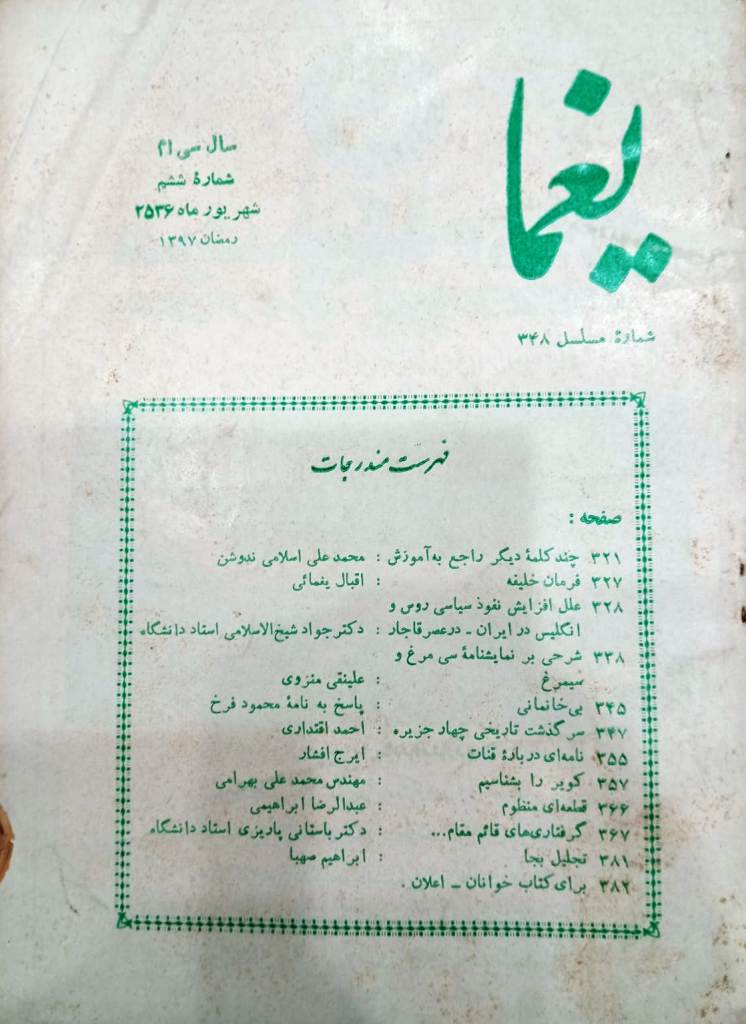 یغما
سال سی ام
شمارهٔ ششم
شهریور ماه ۲۵۳۶
رمضان ۱۳۹۷
شمارهٔ مسلسل ۳۴۸
فهرست مندرجات
صفحه :
۳۲۱ چند کلمهٔ دیگر راجع به آموزش : محمد علی اسلامی ندوشن
۳۲۷ فرمان خلیفه : اقبال یغمائی
۳۲۸ علل افزایش نفوذ سیاسی روس و
انگلیس در ایران ـ در عصر قاجار : دکتر جواد شیخ‌الاسلامی استاد دانشگاه
۳۳۸ شرحی بر نمایشنامهٔ سی مرغ و
سیمرغ : علینقی منزوی
۳۴۵ بی‌خانمانی : پاسخ به نامهٔ محمود فرخ
۳۴۷ سرگذشت تاریخی چهار جزیره : احمد اقتداری
۳۵۵ نامه‌ای دربارهٔ قنات : ایرج افشار
۳۵۷ کویر را بشناسیم : مهندس محمد علی بهرامی
۳۶۶ قطعه‌ای منظوم : عبدالرضا ابراهیمی
۳۶۷ گرفتاری‌های قائم مقام... : دکتر باستانی پاریزی استاد دانشگاه
۳۸۱ تجلیل بجا : ابراهیم صهبا
۳۸۲ برای کتاب خوانان ـ اعلان .